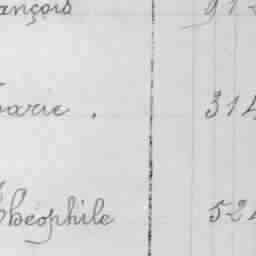 ançois 91
arie. 314
Théophile 52